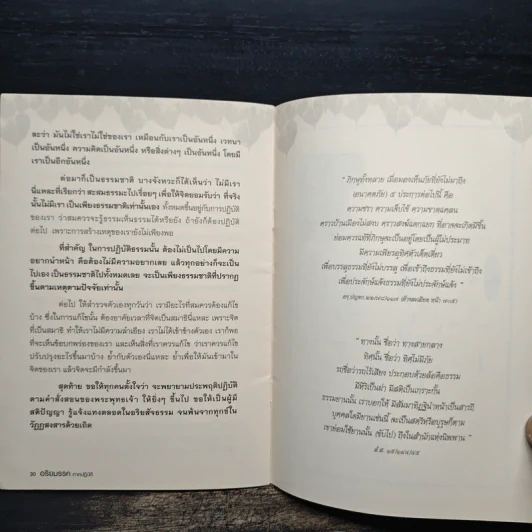 ละว่า มันไม่ใช่เราไม่ใช่ของเรา เหมือนกับเราเป็นอันหนึ่ง เวทนา
เป็นอันหนึ่ง ความคิดเป็นอันหนึ่ง หรือสิ่งต่างๆ เป็นอันหนึ่ง โดยมี
เราเป็นอีกอันหนึ่ง
ต่อมาก็เป็นธรรมชาติ บางจังหวะก็ได้เห็นว่า ไม่มีเรา
นี่แหละที่เรียกว่า สะสมธรรมะไปเรื่อยๆ เพื่อให้จิตยอมรับว่า ที่จริง
นั้นไม่มีเรา เป็นเพียงธรรมชาติเท่านั้นเอง ทั้งหมดขึ้นอยู่กับการปฏิบัติ
ของเรา ว่าสมควรจะรู้ธรรมเห็นธรรมได้หรือยัง ถ้ายังก็ต้องปฏิบัติ
ต่อไป เพราะการสร้างเหตุของเรายังไม่เพียงพอ
ที่สำคัญ ในการปฏิบัติธรรมนั้น ต้องไม่เป็นไปโดยมีความ
อยากนำหน้า คือต้องไม่มีความอยากเลย แล้วทุกอย่างก็จะเป็น
ไปเอง เป็นธรรมชาติไปทั้งหมดเลย จะเป็นเพียงธรรมชาติที่ปรากฏ
ขึ้นตามเหตุตามปัจจัยเท่านั้น
ต่อไป ให้สำรวจตัวเองทุกวันว่า เรามีอะไรที่สมควรต้องแก้ไข
บ้าง ซึ่งในการแก้ไขนั้น ต้องอาศัยเวลาที่จิตเป็นสมาธินี่แหละ เพราะจิต
ที่เป็นสมาธิ ทำให้เราไม่มีความลำเอียง เราไม่ได้เข้าข้างตัวเอง เราก็พอ
ที่จะเห็นข้อบกพร่องของเรา และเห็นสิ่งที่เราควรแก้ไข ว่าเราควรแก้ไข
ปรับปรุงอะไรขึ้นมาบ้าง ย้ำกับตัวเองนี่แหละ ย้ำเพื่อให้มันเข้ามาใน
จิตของเรา แล้วจิตจะมีกำลังขึ้นมา
สุดท้าย ขอให้ทุกคนตั้งใจว่า จะพยายามประพฤติปฏิบัติ
ตามคำสั่งสอนของพระพุทธเจ้า ให้ยิ่งๆ ขึ้นไป ขอให้เป็นผู้มี
สติปัญญา รู้แจ้งแทงตลอดในอริยสัจธรรม จนพ้นจากทุกข์ใน
วัฏฏสงสารด้วยเถิด
30 อริยมรรค ภาคปฏิบัติ
" ภิกษุทั้งหลาย เมื่อมองเห็นภัยที่ยังไม่มาถึง
(อนาคตภัย) ๕ ประการต่อไปนี้ คือ
ความชรา ความเจ็บไข้ ความขาดแคลน
คราวบ้านเมืองไม่สงบ คราวสงฆ์แตกแยก ที่อาจจะเกิดมีขึ้น
ย่อมควรแท้ที่ภิกษุจะเป็นอยู่โดยเป็นผู้ไม่ประมาท
มีความเพียรอุทิศตัวเด็ดเดี่ยว
เพื่อบรรลุธรรมที่ยังไม่บรรลุ เพื่อเข้าถึงธรรมที่ยังไม่เข้าถึง
เพื่อประจักษ์แจ้งธรรมที่ยังไม่ประจักษ์แจ้ง "
" ทางนั้น ชื่อว่า ทางสายกลาง
ทิศนั้น ชื่อว่า ทิศไม่มีภัย
รถชื่อว่ารถไร้เสียง ประกอบด้วยล้อคือธรรม
มีหิริเป็นฝา มีสติเป็นเกราะกั้น
ธรรมยานนั้น เราบอกให้ มีสัมมาทิฏฐินำหน้าเป็นสารถี
บุคคลใดมียานเช่นนี้ จะเป็นสตรีหรือบุรุษก็ตาม
เขาย่อมใช้ยานนั้น (ขับไป) ถึงในสำนักแห่งนิพพาน "